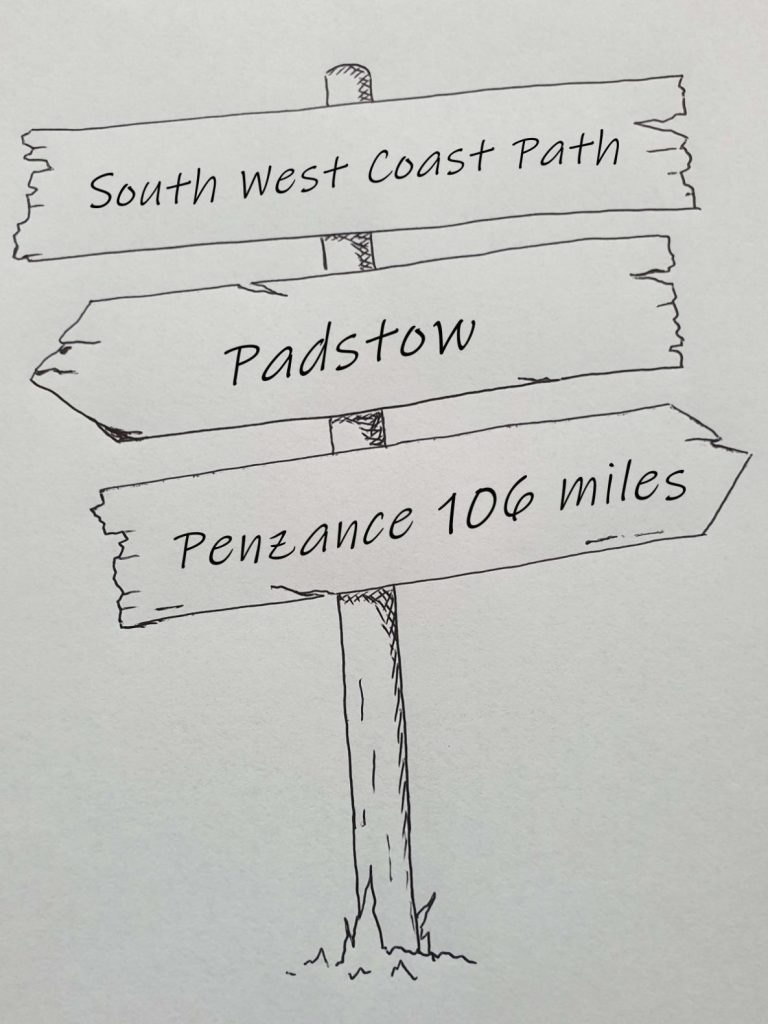 South West Coast Path
Padstow
Penzance 106 miles